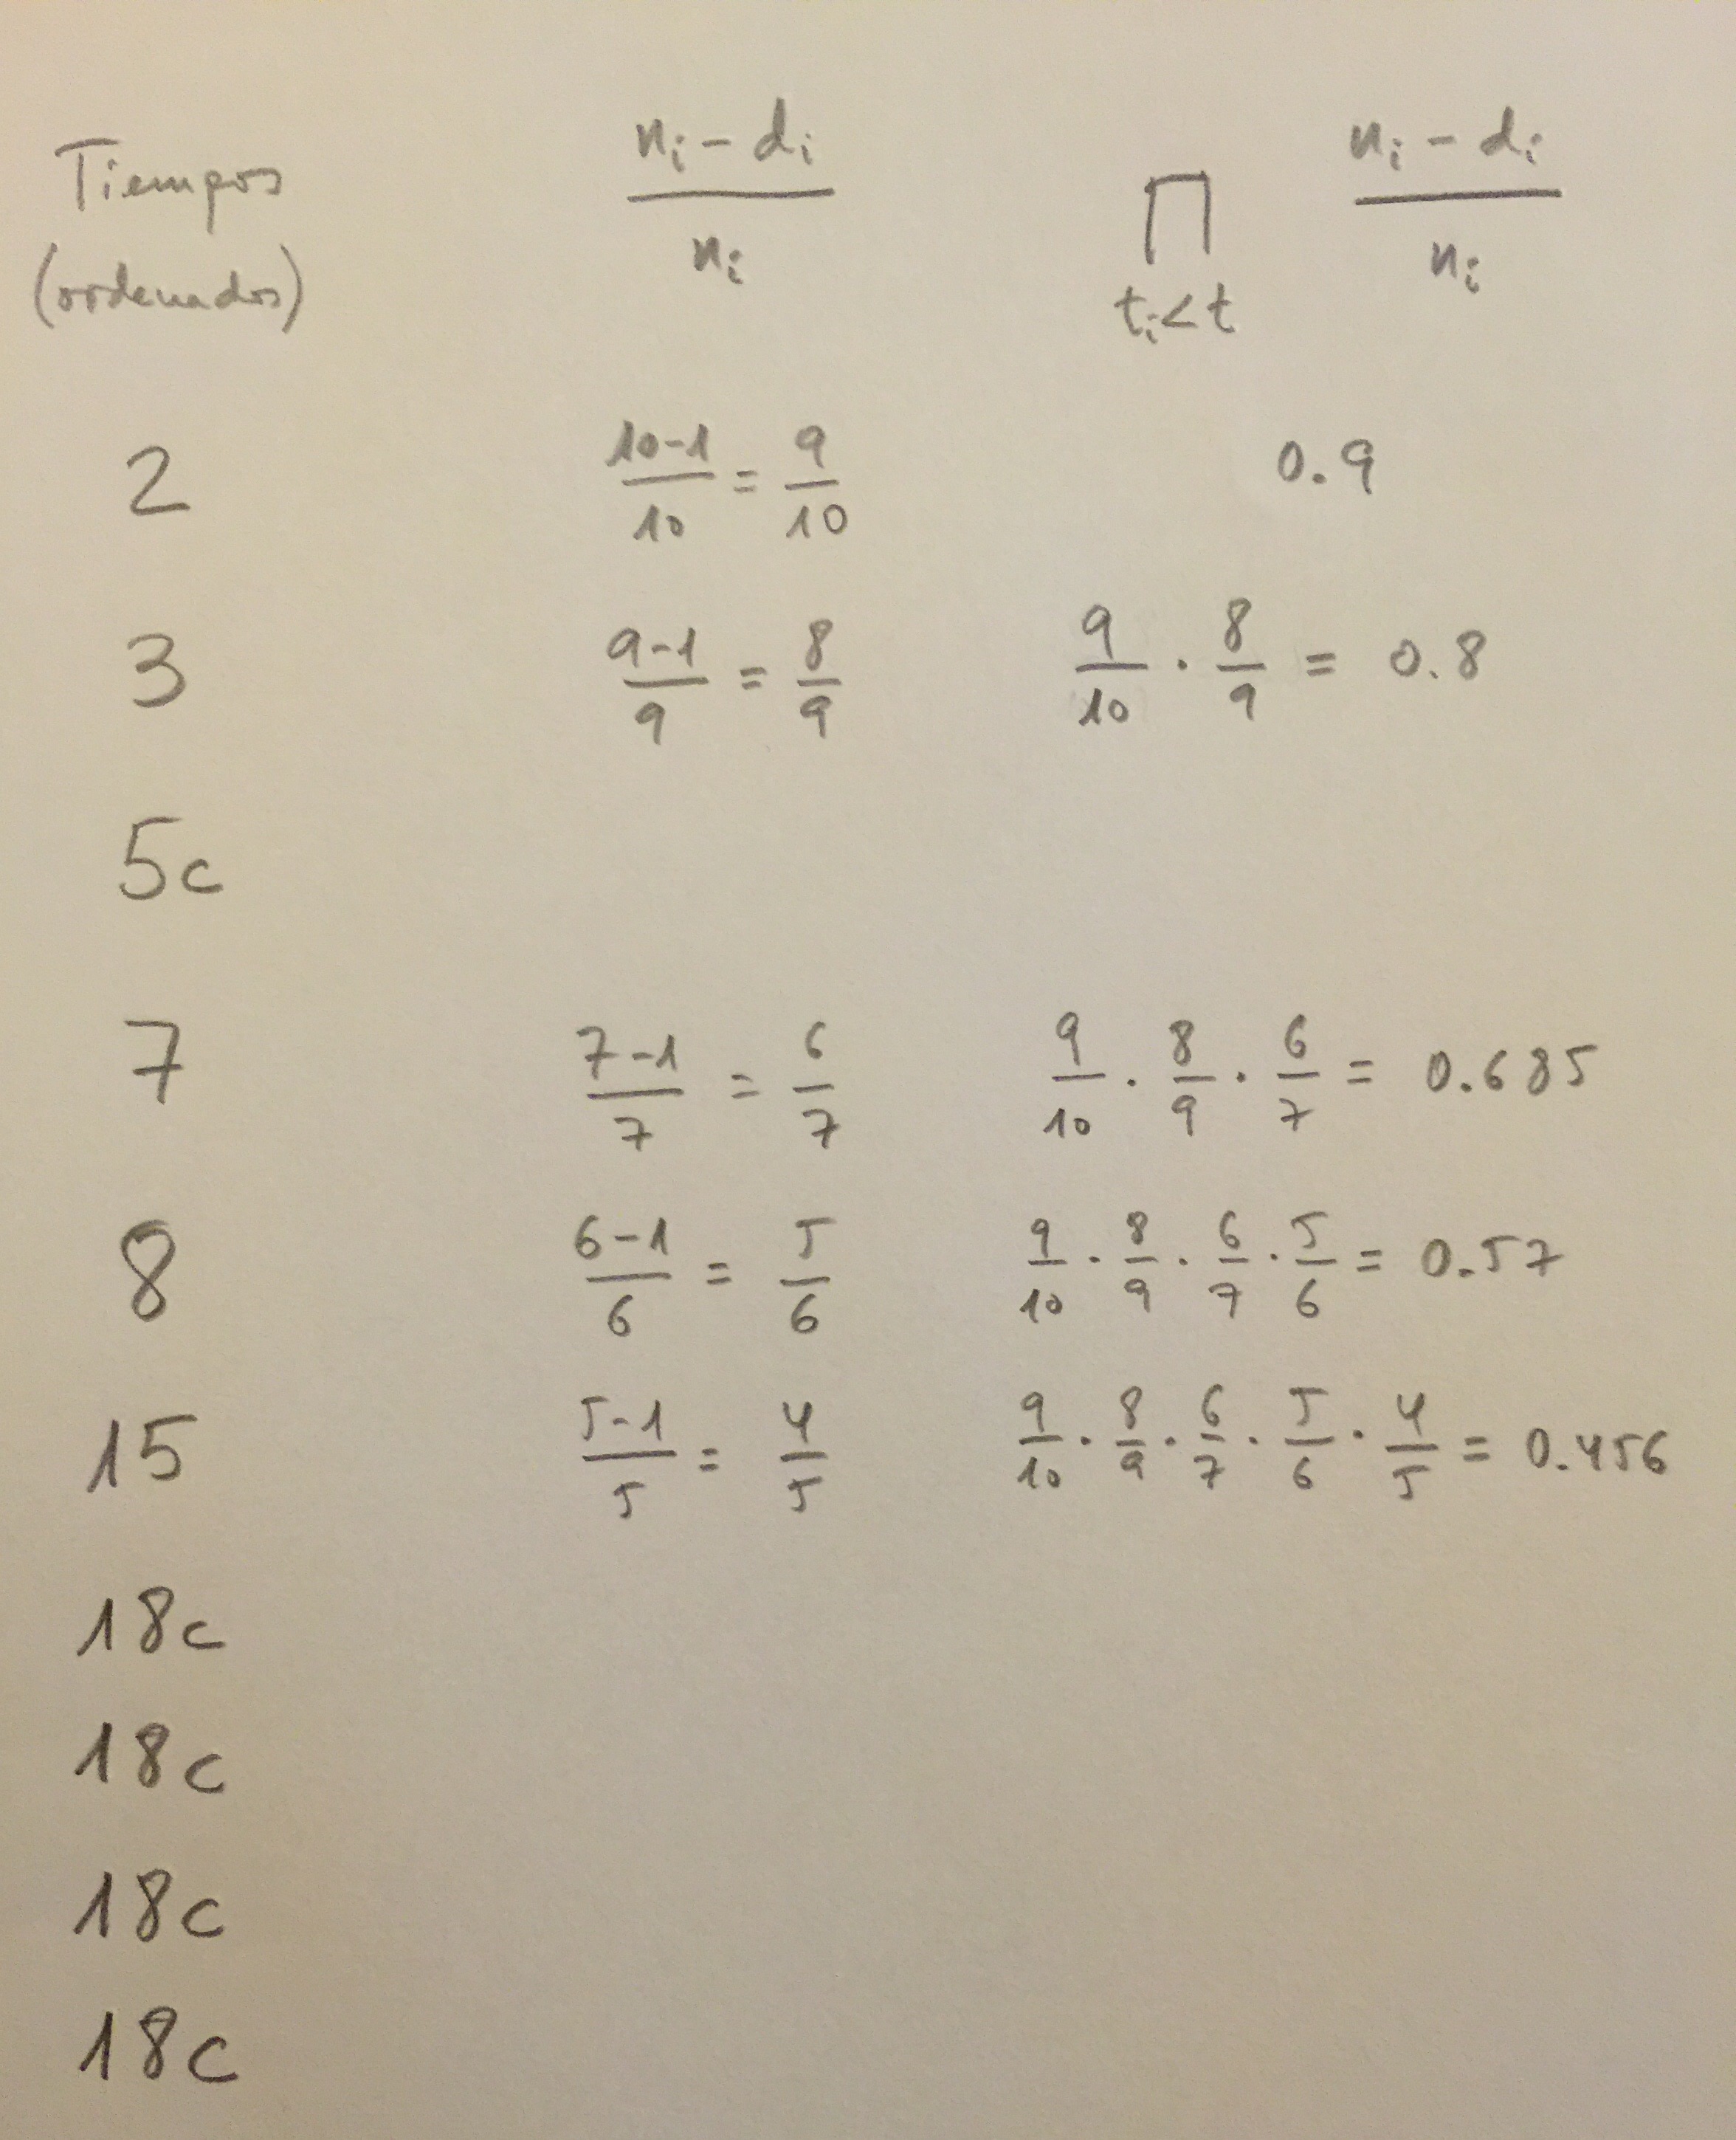 Tiempos (ordenados) (nᵢ - dᵢ)/nᵢ ∏ tᵢ<t (nᵢ - dᵢ)/nᵢ
2 (10-1)/10 = 9/10 0.9
3 (9-1)/9 = 8/9 9/10 · 8/9 = 0.8
5c
7 (7-1)/7 = 6/7 9/10 · 8/9 · 6/7 = 0.685
8 (6-1)/6 = 5/6 9/10 · 8/9 · 6/7 · 5/6 = 0.57
15 (5-1)/5 = 4/5 9/10 · 8/9 · 6/7 · 5/6 · 4/5 = 0.456
18c
18c
18c
18c